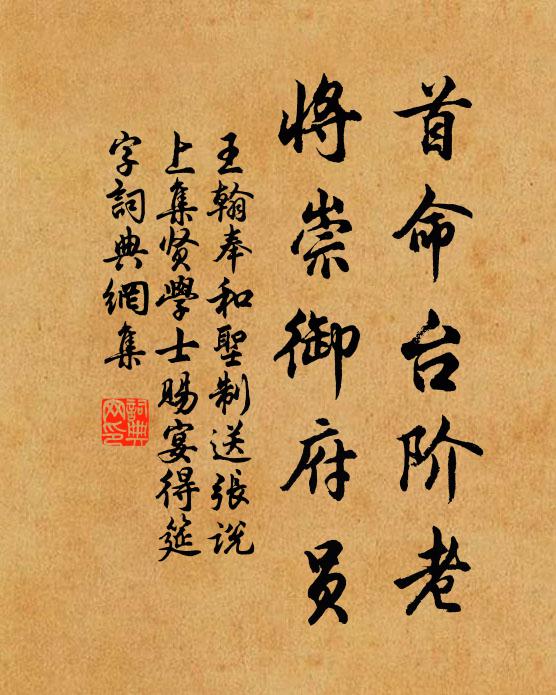 首命台阶老
将崇御府员
王翰奉和聖制送張说
上集贤學士赐宴得筵
字詞典網集
詞典網印